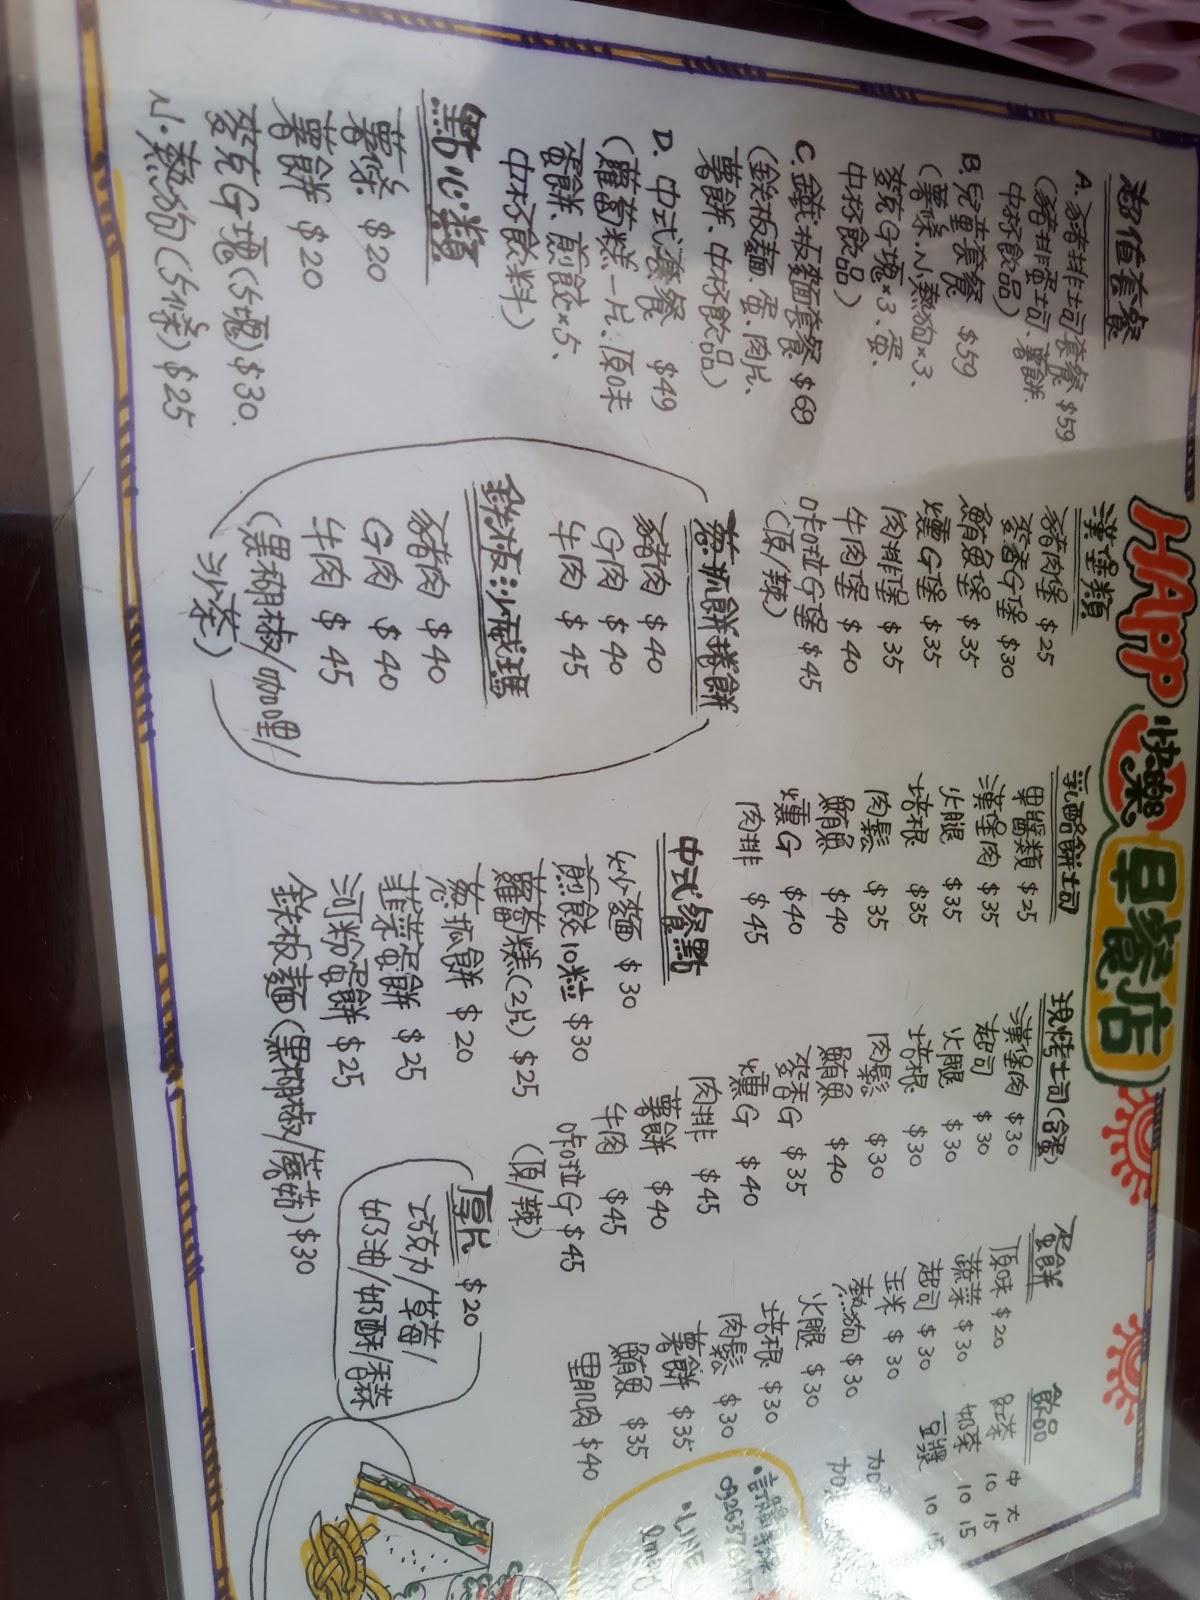 HAPP 快樂 早餐店
超值套餐
A.豬排土司套餐 $59
(豬排蛋土司、薯餅、
中杯飲品)
B.兒童套餐 $59
(薯條、小熱狗×3、
麥克G塊×3、蛋、
中杯飲品)
C.鐵板麵套餐 $69
(鉄板麵、蛋、肉片、
薯餅、中杯飲品)
D.中式套餐 $49
(蘿蔔糕一片、原味
蛋餅、煎餃×5、
中杯飲料)
點心類
薯條 $20
薯餅 $20
麥克G塊(5塊) $30
小熱狗(5條) $25
漢堡類
豬肉堡 $25
麥香G堡 $30
鮪魚堡 $35
燻G堡 $35
肉排堡 $35
牛肉堡 $40
咔啦G堡 $45
(原/辣)
蔥抓餅捲餅
豬肉 $40
G肉 $40
牛肉 $45
鉄板沙威瑪
豬肉 $40
G肉 $40
牛肉 $45
(黑椒椒/咖哩/
沙茶)
乳酪餅土司
果醬類 $25
漢堡肉 $35
火腿 $35
培根 $35
肉鬆 $35
鮪魚 $40
燻G $40
肉排 $45
中式餐點
炒麵 $30
煎餃10粒 $30
蘿蔔糕(2片) $25
蔥抓餅 $20
韭菜蛋餅 $25
河粉蛋餅 $25
鉄板麵(黑椒椒/蘑菇) $30
現烤土司(含蛋)
漢堡肉 $30
起司 $30
火腿 $30
培根 $30
肉鬆 $30
鮪魚 $40
麥香G $35
燻G $40
肉排 $45
薯餅 $40
牛肉 $45
咔啦G $45
(原/辣)
厚片 $20
巧克力/草莓/
奶油/奶酥/香蒜
蛋餅
原味 $20
蔬菜 $30
起司 $30
玉米 $30
熱狗 $30
火腿 $30
培根 $30
肉鬆 $30
薯餅 $35
鮪魚 $35
里肌肉 $40
飲品
中 大
紅茶 10 15
奶茶 10 15
豆漿 10 15
加
加
•LINE